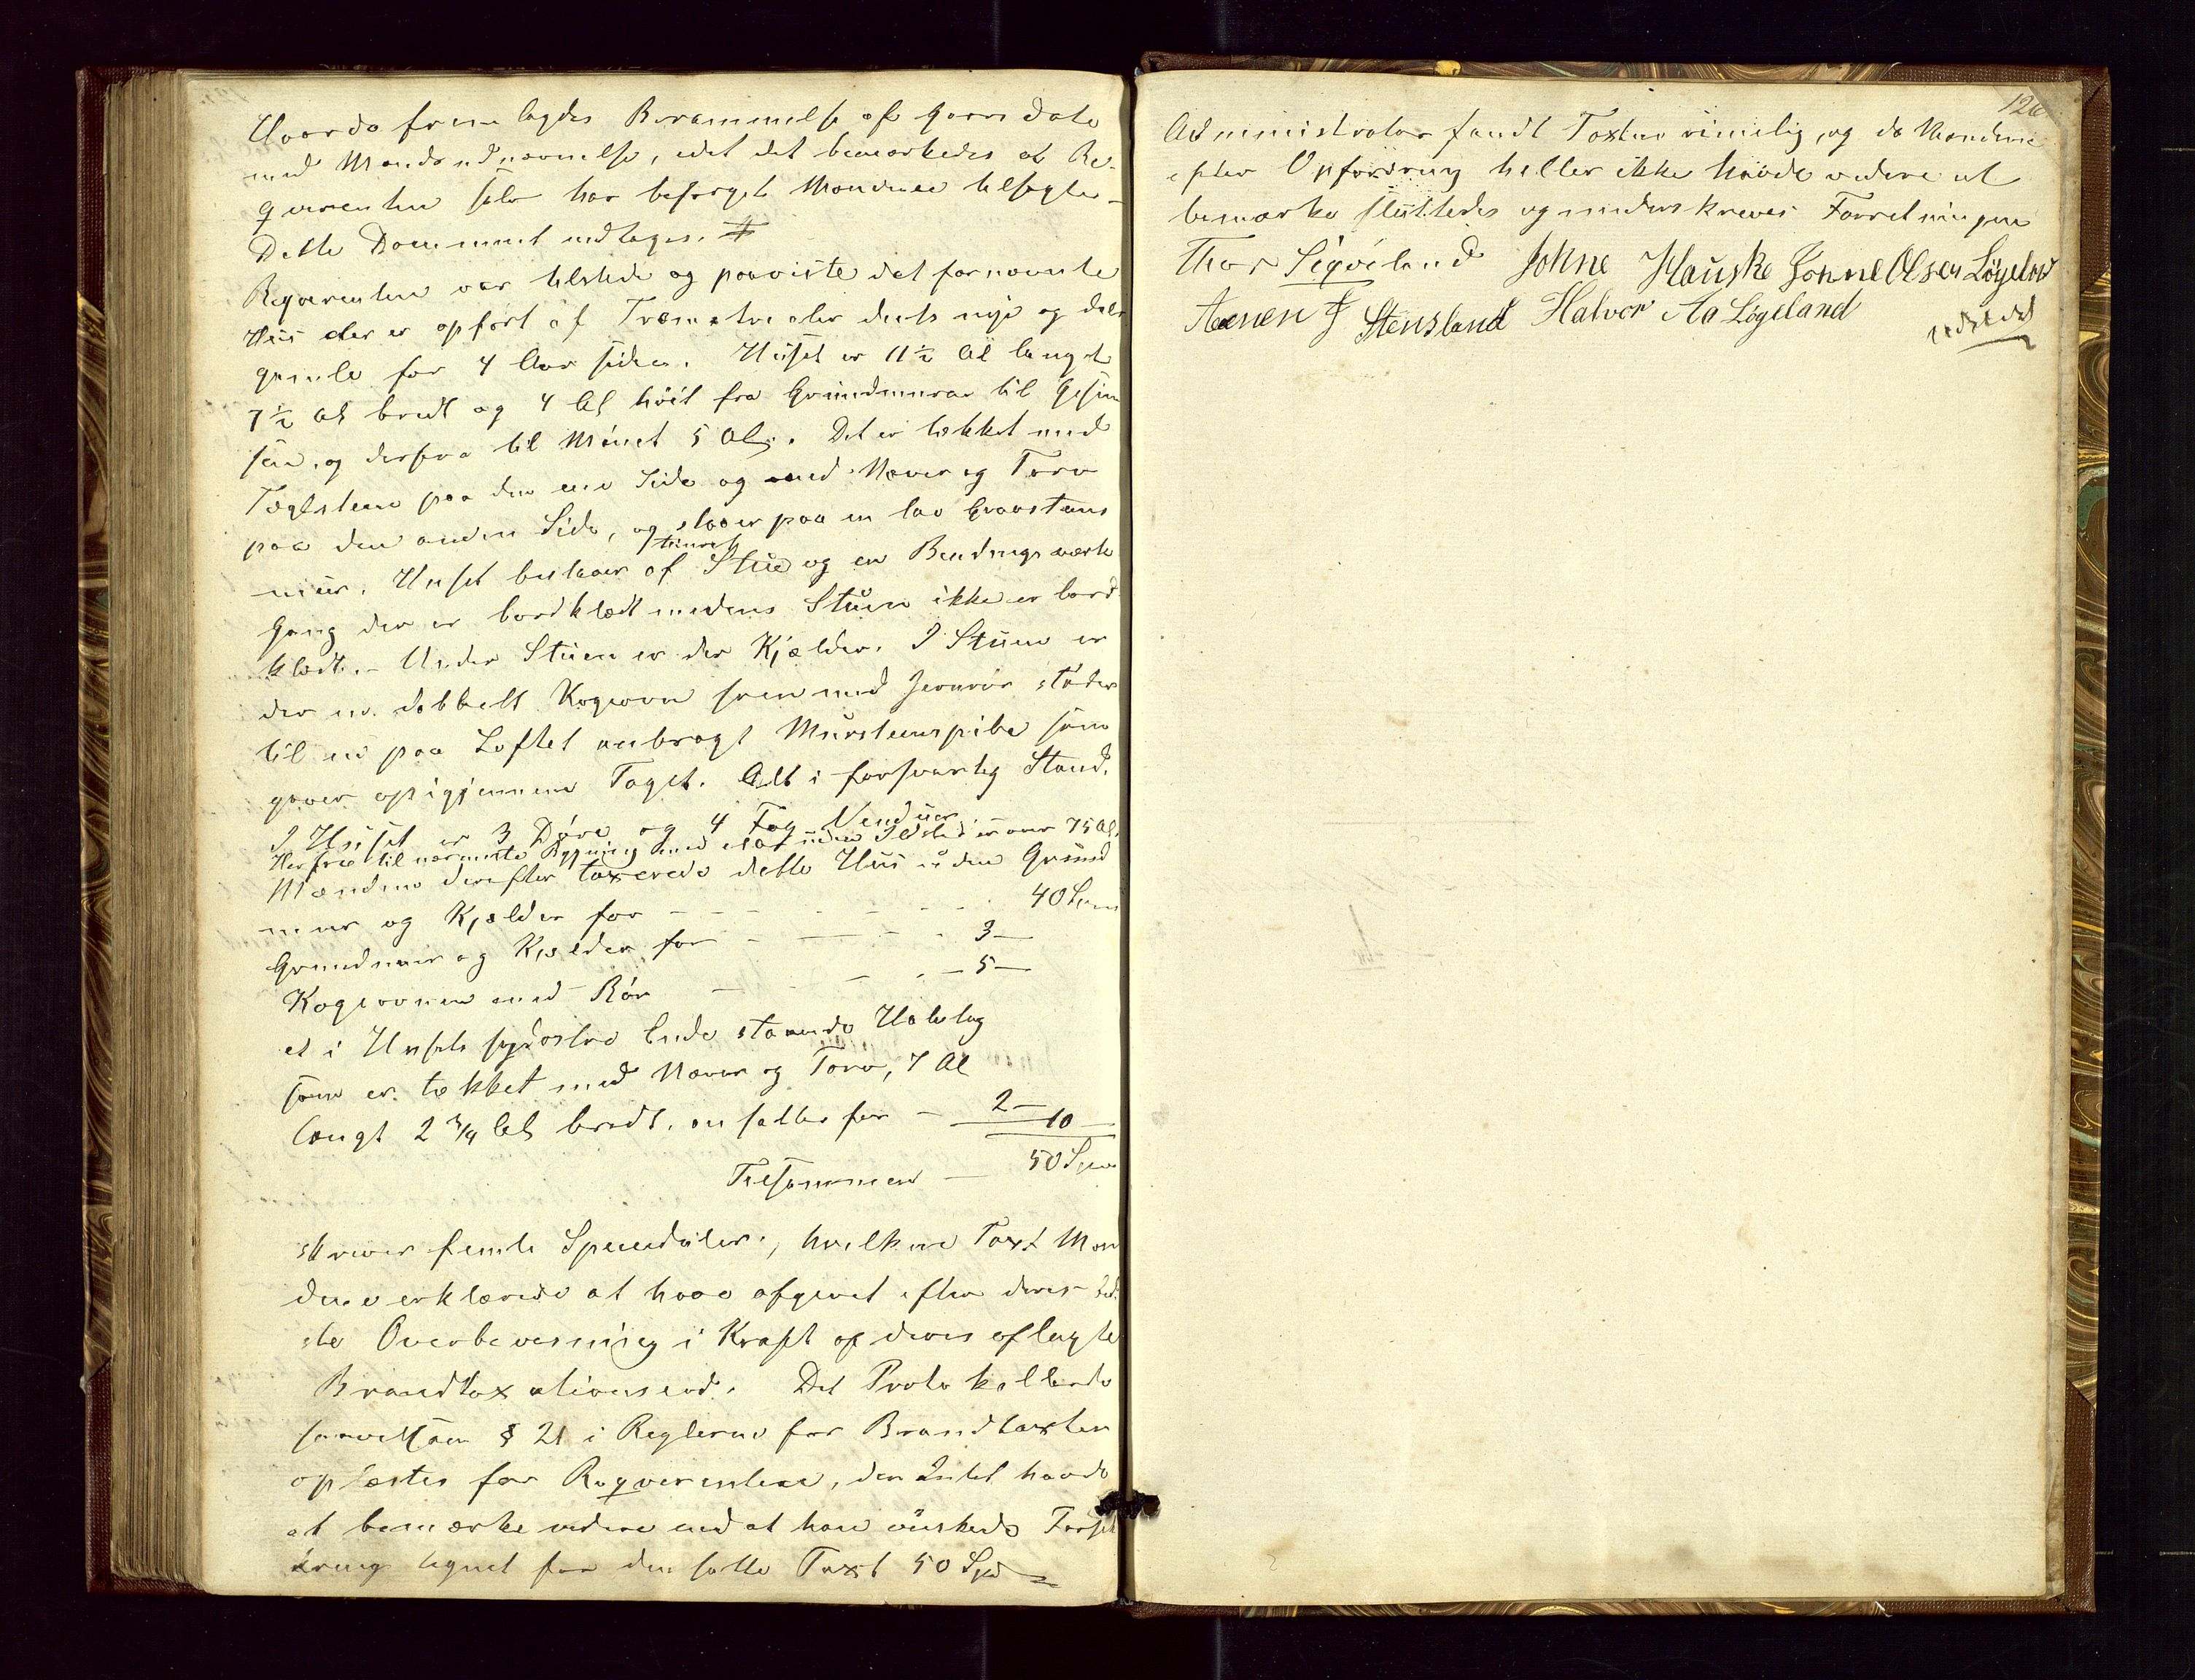 Hvorda fremlagdes Berammelse af Gaars Dato
med Mandsudnævnelse, idet det bemærkedes at Re-
qverenten selv har besørget Mændene tilsagte –
Dette Document indtages.
Reqverenten var tilstede og paaviste det fornævnte
Huus der er opført af Træmateralier deels nye og deels
gamle for 4 Aar siden. Huset er 11½ Al langt
7½ Al bredt og 4 Al høit fra Grundmuren til Gesim
sen, og derfra til Mønet 5 Al. Det er tækket med
Taglsteen paa den ene Side og med Næver og Torv
paa den anden Side, og staaer paa en lav Graasteens
muur. Huset bestaaer af Stue og en Bindingsværks
Gang der er bordklædt medens Stuen ikke er bord
klædt. – Under Stuen er der Kjælder. I Stuen er
der en dobbelt Kogeovn som med Jernrør støder
til en paa Loftet anbragt Muursteenspibe som
gaaer op igjennem Taget. Alt i forsvarlig Stand.
I Huset er 3 Døre og 4 Fag Vinduer
Herfra til nærmeste Bygning med eller uden Ildsted er over 75 Al.
Mændene derefter taxerede dette Huus uden Grund
muur og Kjælder for – – – 40 Spd
Grundmuur og Kjælder for – – – 3 –
Kogeovnen med Rør – – – 5 –
et i Husets sydostre Ende staaende Halvtag
som er tækket med Næver og Torv, 7 Al
langt 2¾ Al bredt. ansattes for – 2 – 10 –
Tilsammen – 50 Spd
skriver femti Speciedaler, hvilken Taxt Mæn
dene erklærede at have afgivet efter deres bed
ste Overbeviisning i Kraft af deres aflagte
Brandtaxationseed. Det Protokollerede
samt § 21 i Reglerne for Brandtaxter
oplæstes for Reqverenten, der Intet havde
at bemærke videre end at han ønskede Forsik
kring tegnet for den satte Taxt 50 Spd
126
Administrator fandt Taxten rimelig, og da Mændene
efter Opfordring heller ikke havde videre at
bemærke sluttedes og underskreves Forretningen
Thor Sigveland Johne Hauske Jonne Olsen Løgeland
Aanen J Stensland Halvor Aa Løgeland
udstedt